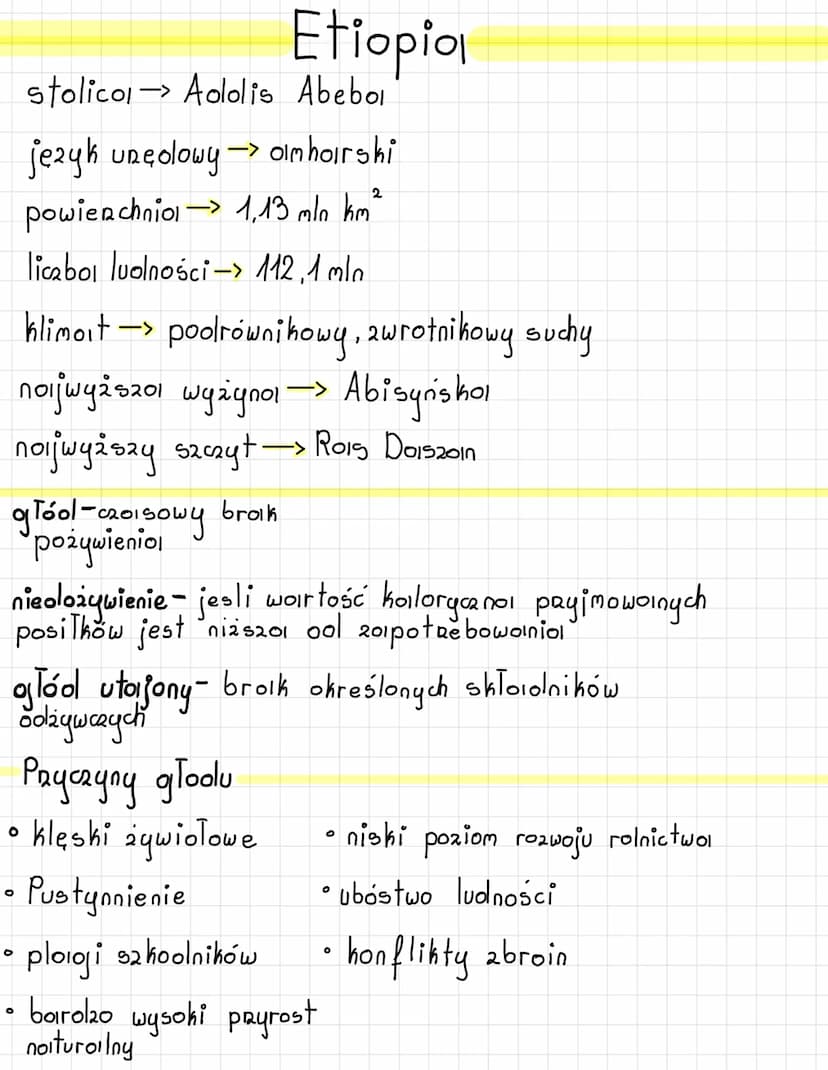 Etiopia
stolica → Addis Abeba
język urzędowy → amharski
powierzchnia → 1,13 mln km²
liczba ludności → 112,1 mln
klimat → podrównikowy, zwrotnikowy suchy
najwyższa wyżyna → Abisyńska
najwyższy szczyt → Ras Daszan
głód - czasowy brak
pożywienia
niedożywienie - jesli wartość kaloryczna przyjmowanych
posiłków jest niższa od zapotrzebowania
głód utajony - brak określonych składników
odżywczych
Przyczyny głodu
• klęski żywiołowe
• niski poziom rozwoju rolnictwa
• Pustynnienie
• ubóstwo ludności
• plagi szkodników
• konflikty zbroin
• bardzo wysoki przyrost
naturalny